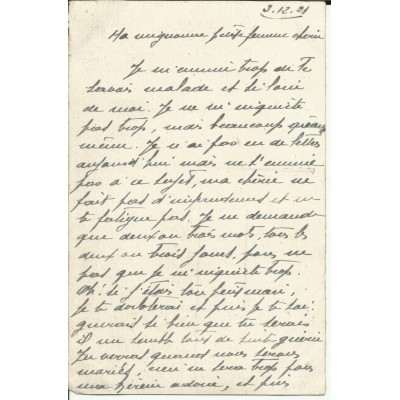 3.12.21
Ma mignonne petite femme chérie
Je m'ennuie trop de te
savoir malade et si loin
de moi. Je ne m'inquiète
pas trop, mais beaucoup quand
même. Je n'ai pas eu de lettre
aujourd'hui mais ne t'ennuie
pas à ce sujet, ma chérie ne
fait pas d'imprudences et ne
te fatigue pas. Je ne demande
que deux ou trois mots, tous les
deux ou trois jours, pour ne
pas que je m'inquiète trop.
Ah! si j'étais ton petit mari,
Je te dorloterai et puis je te soi-
gnerais si bien que tu serais
en un rien de temps guérie
Tu verras quand nous serons
mariés, rien ne sera trop pour
ma chérie adorée, et puis